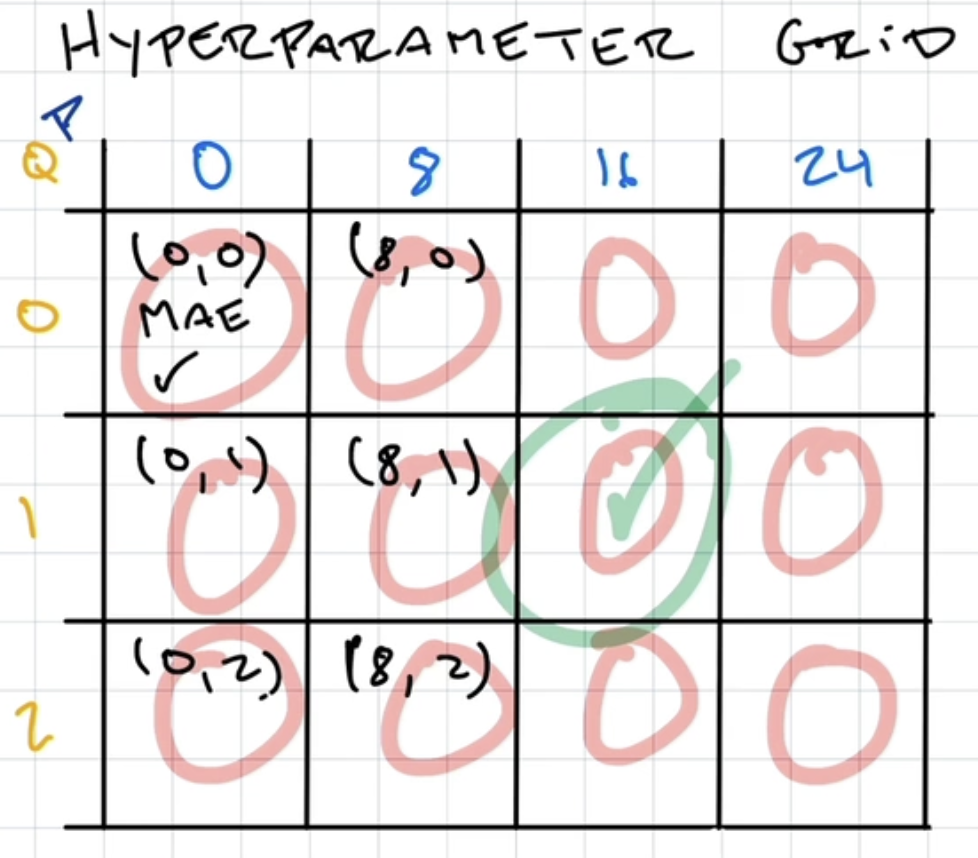 HYPERPARAMETER GRID
P
Q 0 8 16 24
0 (0,0) (8,0)
MAE
✓
1 (0,1) (8,1)
2 (0,2) (8,2)